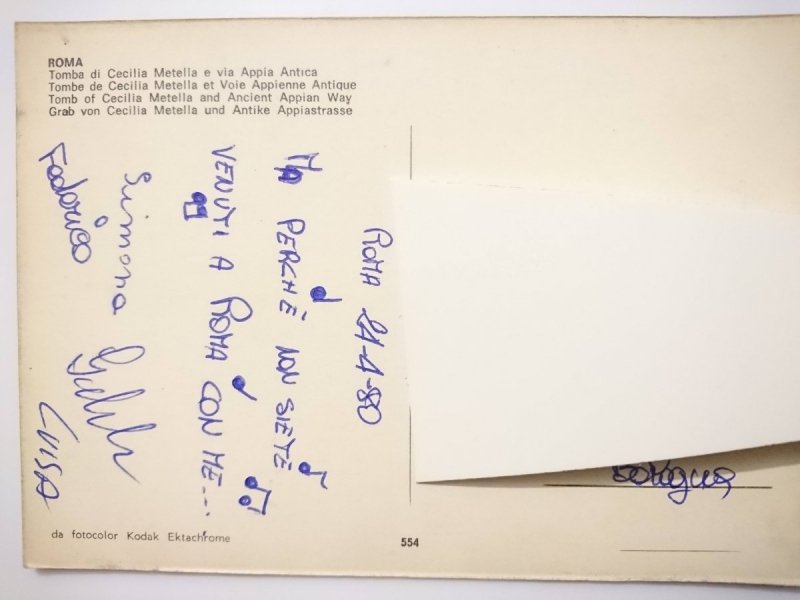 ROMA
Tomba di Cecilia Metella e via Appia Antica
Tombe de Cecilia Metella et Voie Appienne Antique
Tomb of Cecilia Metella and Ancient Appian Way
Grab von Cecilia Metella und Antike Appiastrasse
ROMA 21-4-80
MA PERCHÈ NON SIETE
VENUTI A ROMA CON ME...
Simona
Federico
LUISA
Bologna
da fotocolor Kodak Ektachrome
554